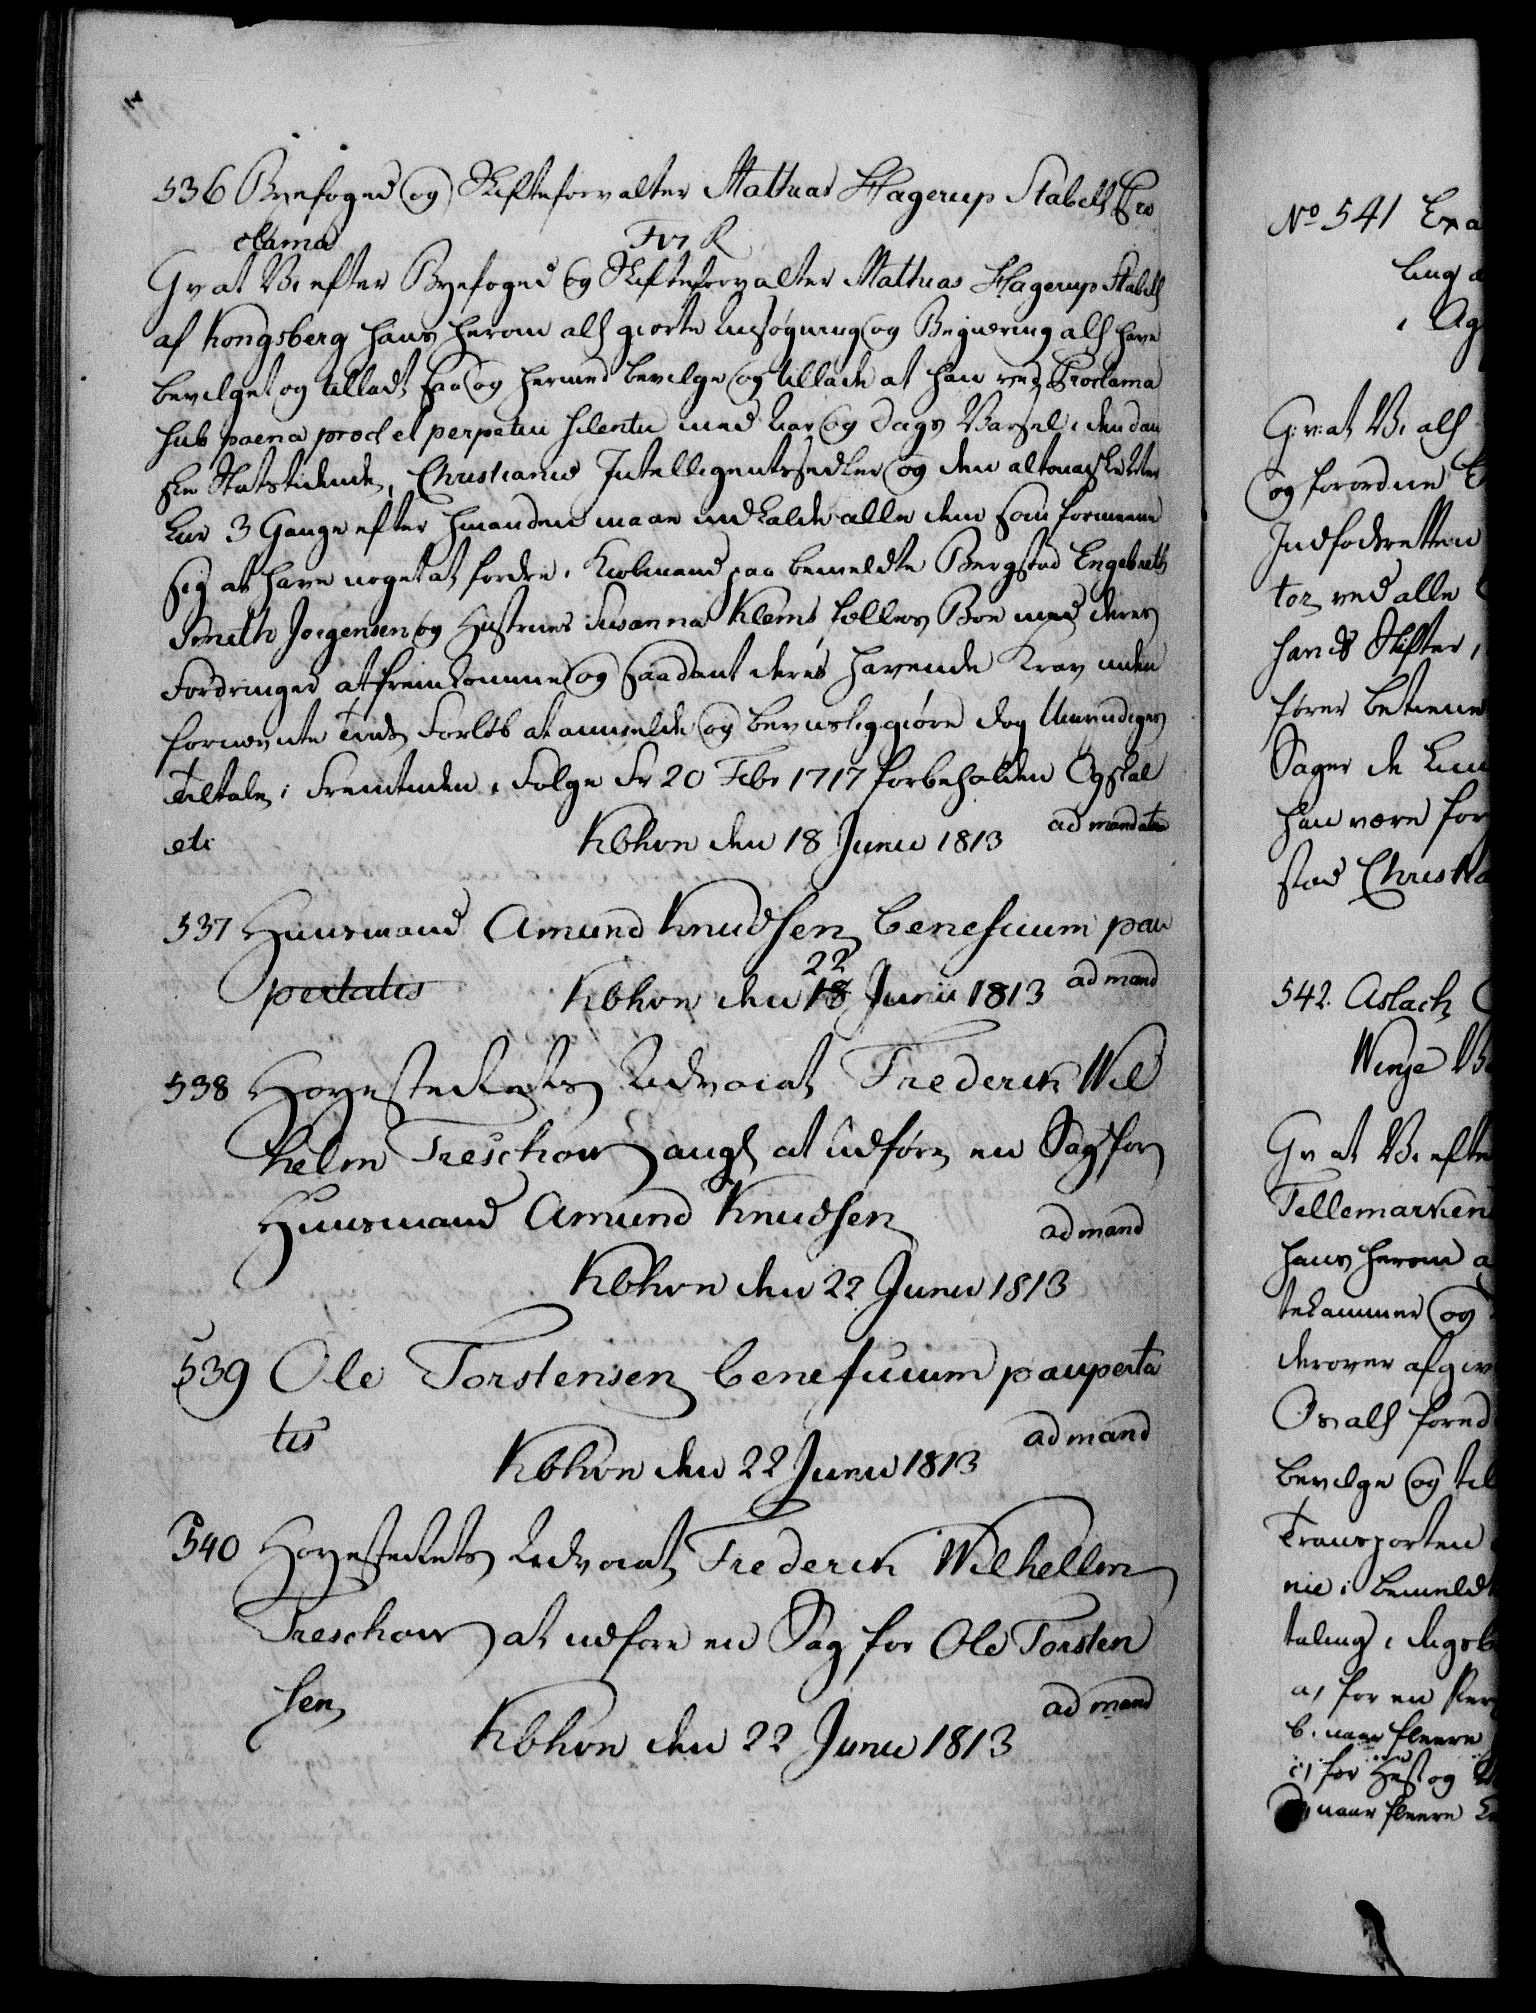 536 Byefoged og Skifteforvalter Mathias Hagerup Stabels Pro
clama F VI R
G v at Vi efter Byefoged og Skifteforvalter Mathias Hagerup Stabels
af Kongsberg hans herom alf giorte Ansøgning og Begiæring alf have
bevilget og tilladt saa og hermed bevilge og tillade at han ved Proclama
sub paena præcl et perpetui silentii med Aar og Dags Varsel i den dan
ske Statstidende, Christiania Intelligentssedler og den altonaiske Mer
kur 3 Gange efter hinanden maae indkalde alle dem som formene
sig at have noget at fordre i Kiøbmand paa bemeldte Bergstad Engebreth
Smith Jorgensen og Hustrues Susanna Klems fælleds Boe med deres
Fordringer at fremkomme og saadant deres havende Krav inden
fornævnte Tids Forløb at anmelde og beviisliggiøre dog Umyndiges
Tiltale i Fremtiden i Følge Fr 20 Febr 1717 forbeholden Og skal
etc Kbhvn den 18 Junii 1813 ad mandatum
537 Huusmand Amund Knudsen beneficium pau
pertatis Kbhvn den 22 Junii 1813 ad mand
538 Høyesteretts Advocat Frederik Wil
helm Treschow ang at udføre en Sag for
Huusmand Amund Knudsen ad mand
Kbhvn den 22 Junii 1813
539 Ole Torstensen beneficium pauperta
tis ad mand
Kbhvn den 22 Junii 1813
540 Høyesteretts Advocat Frederik Wilhellm
Treschow at udføre en Sag for Ole Torsten
sen ad mand
Kbhvn den 22 Junii 1813
No 541 Exa
ling
i Ag
G: v: at Vi alf
og forordne
Indfødsretten
tor ved alle
hands Stifter,
fører betiene
Sager de
han være for
stad Christia
542. Aslach
Winje
G v at Vi efter
Tellemarken
hans herom a
tekammer og
derover afgiv
Os alf fored
bevilge og til
Transporten
nie i bemeldt
taling i
a, for en Per
b. naar fleere
c, for Hest og
d, naar fleere